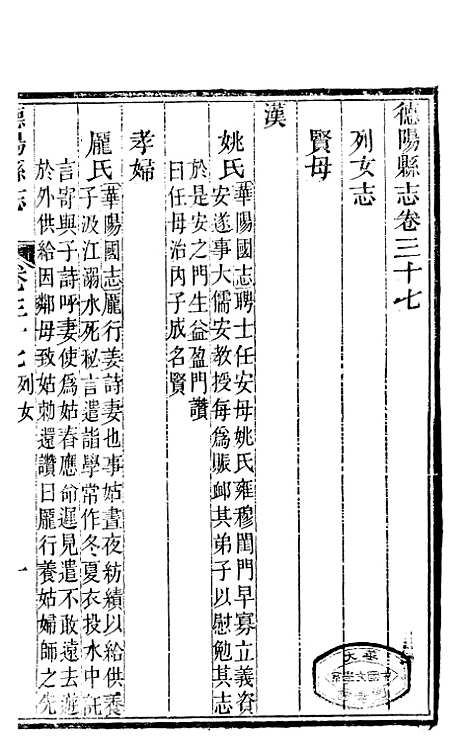 德陽縣志卷三十七
列女志
賢母
漢
姚氏華陽國志聘士任安母姚氏雍穆閨門早寡立義資
安遂事大儒安教授每爲賑䘏其弟子以慰勉其志
於是安之門生益盈門讚
曰任母治內子成名賢
孝婦
龐氏華陽國志龐行姜詩妻也事姑晝夜紡績以給供養
子汲江溺水死秘言遣詣學常作冬夏衣投水中託
言寄與子詩呼妻使爲姑舂應命遲見遣不敢遠去遊
於外供給因鄰母致姑勑還讚曰龐行養姑婦師之先
德陽縣志
卷三十七列女
一